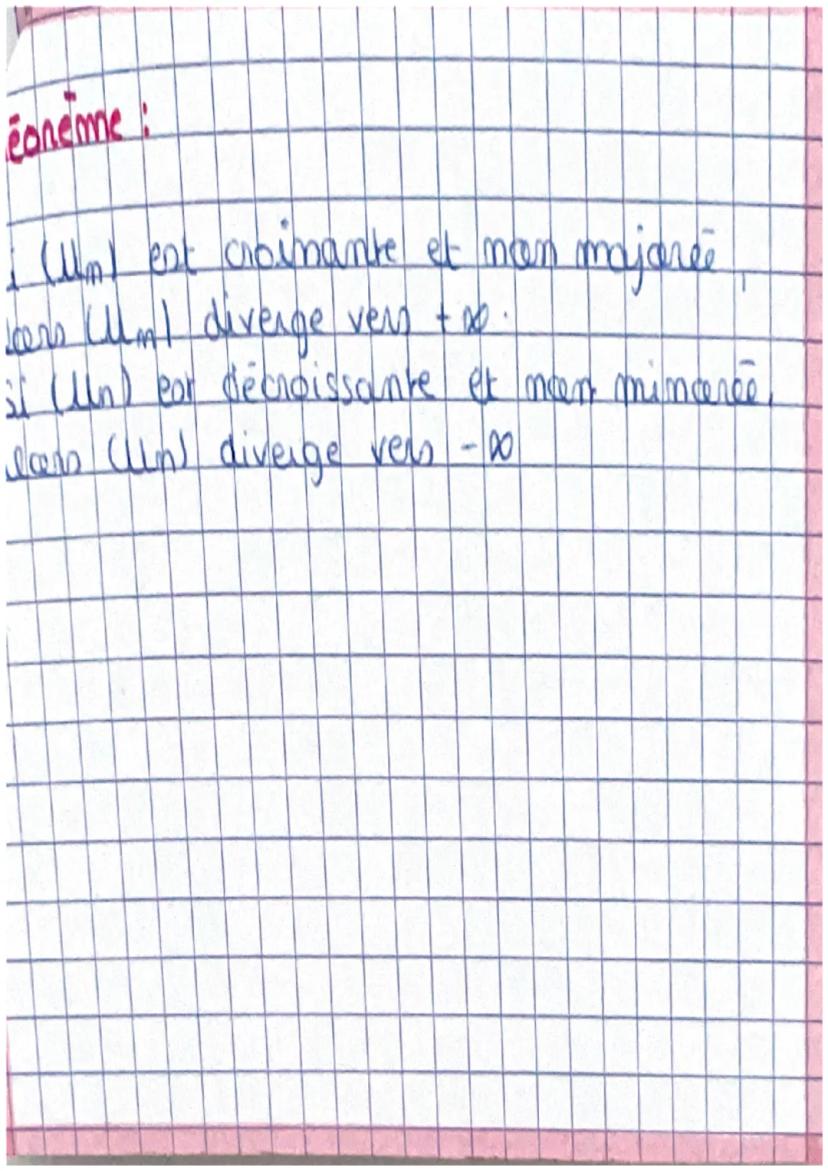 éorème :
i (Un) est croissante et non majorée,
lors (Un) diverge vers +∞.
si (Un) est décroissante et non minorée,
alors (Un) diverge vers -∞